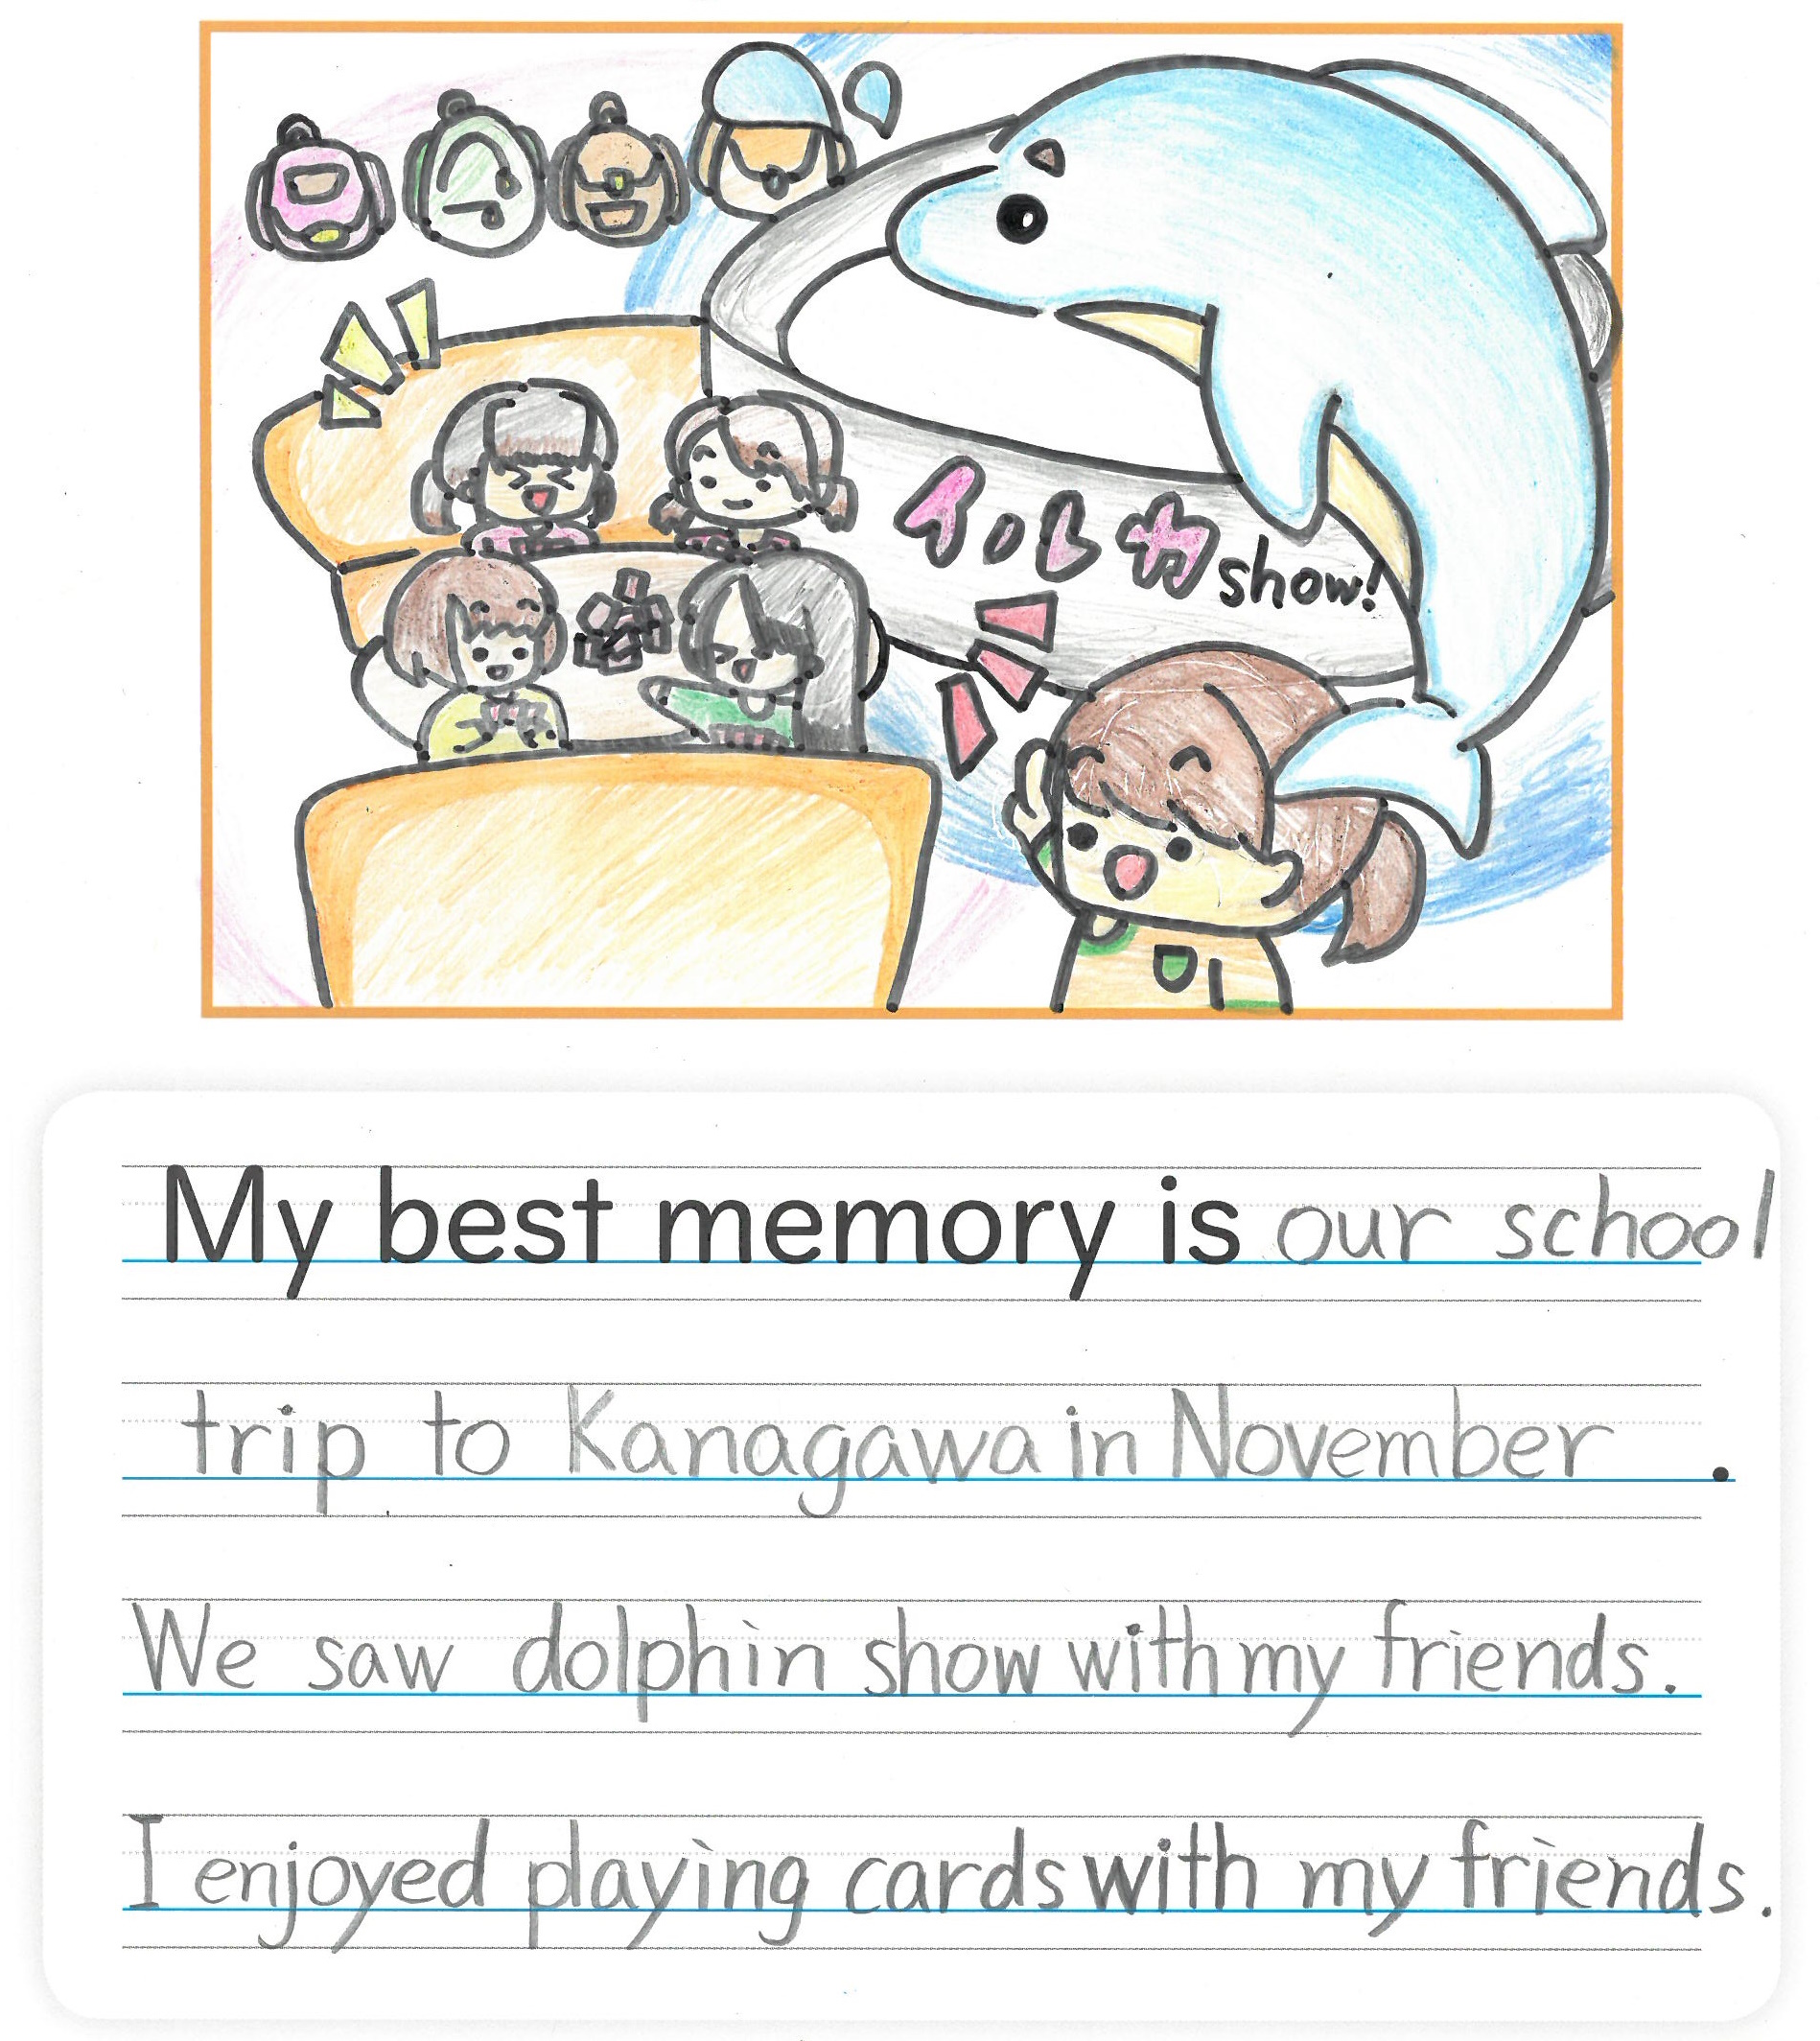 イルカshow!
My best memory is our school
trip to Kanagawa in November .
We saw dolphin show with my friends.
I enjoyed playing cards with my friends.